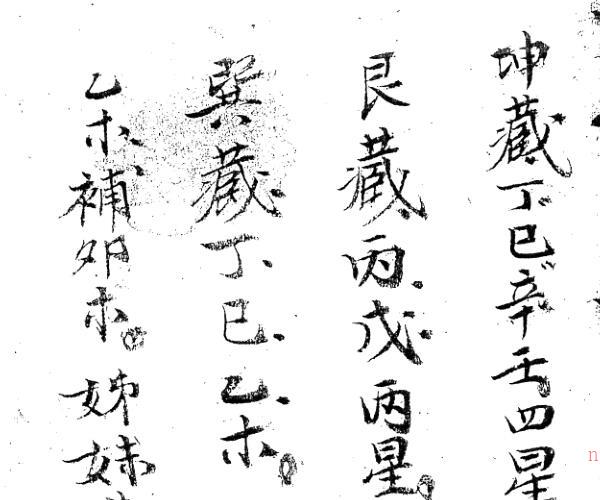 坤藏丁巳辛壬四星
艮藏丙戊兩星
巽藏丁巳乙木
乙木補卯木姊妹